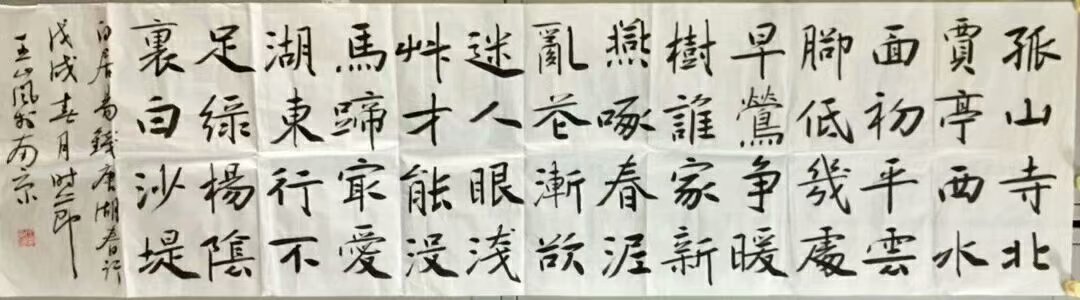 孤山寺北
賈亭西水
面初平雲
脚低幾處
早鶯争暖
樹誰家新
燕啄春泥
亂花漸欲
迷人眼浅
艸才能没
馬蹄冣愛
湖東行不
足緑楊陰
裏白沙堤
白居易錢唐湖春行
戊戌春月时节
王山風於南京